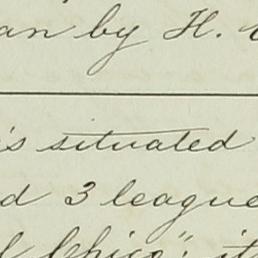 an by H.
's situated
d 3 league
l Chico"; it